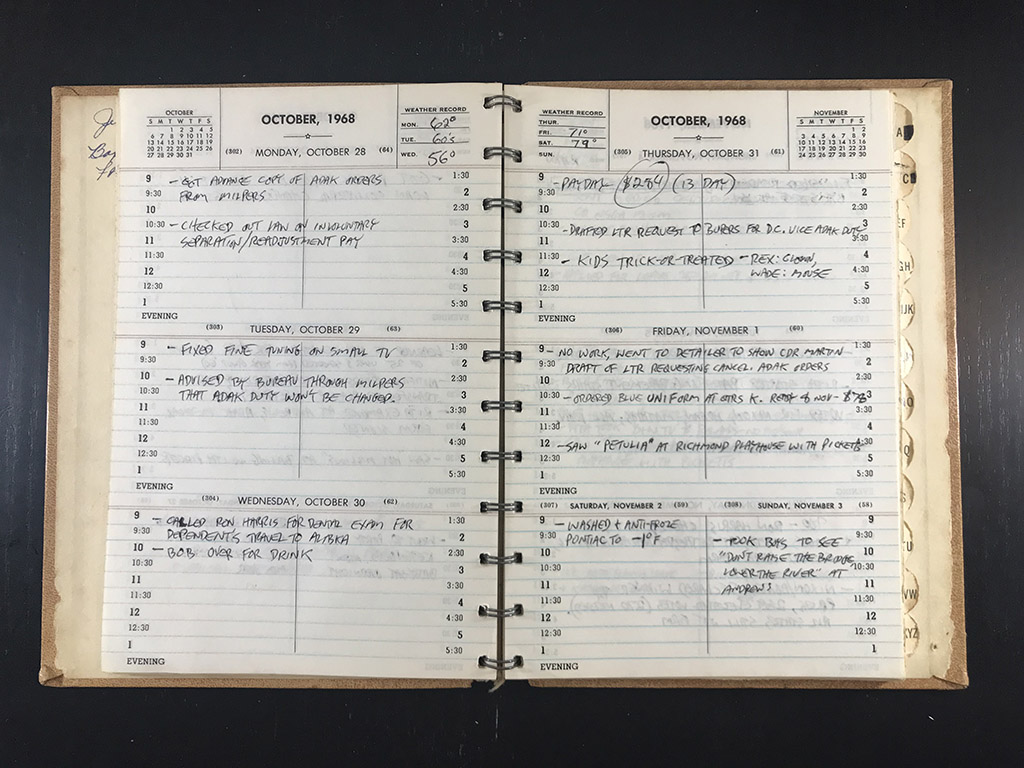 OCTOBER
S M T W T F S
1 2 3 4 5
6 7 8 9 10 11 12
13 14 15 16 17 18 19
20 21 22 23 24 25 26
27 28 29 30 31
OCTOBER, 1968
WEATHER RECORD
MON. 62°
TUE. 60's
WED. 56°
(302) MONDAY, OCTOBER 28 (64)
9 - GOT ADVANCE COPY OF ADAK ORDERS 1:30
9:30 FROM MILPERS 2
10 2:30
10:30 - CHECKED OUT LAW ON INVOLUNTARY 3
11 SEPARATION/READJUSTMENT PAY 3:30
11:30 4
12 4:30
12:30 5
1 5:30
EVENING
(303) TUESDAY, OCTOBER 29 (63)
9 - FIXED FINE TUNING ON SMALL TV 1:30
9:30 2
10 - ADVISED BY BUREAU THROUGH MILPERS 2:30
10:30 THAT ADAK DUTY WON'T BE CHANGED. 3
11 3:30
11:30 4
12 4:30
12:30 5
1 5:30
EVENING
(304) WEDNESDAY, OCTOBER 30 (62)
9 - CALLED RON HARRIS FOR DENTAL EXAM FOR 1:30
9:30 DEPENDENT'S TRAVEL TO ALASKA 2
10 - BOB OVER FOR DRINK 2:30
10:30 3
11 3:30
11:30 4
12 4:30
12:30 5
1 5:30
EVENING
WEATHER RECORD
THUR.
FRI. 71°
SAT. 79°
SUN.
OCTOBER, 1968
NOVEMBER
S M T W T F S
1 2
3 4 5 6 7 8 9
10 11 12 13 14 15 16
17 18 19 20 21 22 23
24 25 26 27 28 29 30
(305) THURSDAY, OCTOBER 31 (61)
9 - PAYDAY $284 (13 DAY) 1:30
9:30 2
10 2:30
10:30 - DRAFTED LTR REQUEST TO BUPERS FOR D.C. VICE ADAK DUTY 3
11 3:30
11:30 - KIDS TRICK-OR-TREATED - REX: CLOWN, 4
12 WADE: MOUSE 4:30
12:30 5
1 5:30
EVENING
(306) FRIDAY, NOVEMBER 1 (60)
9 - NO WORK, WENT TO DETAILER TO SHOW CDR MARTIN 1:30
9:30 DRAFT OF LTR REQUESTING CANCEL. ADAK ORDERS 2
10 2:30
10:30 - ORDERED BLUE UNIFORM AT QTRS K. NOV - $78 3
11 3:30
11:30 4
12 - SAW "PETULIA" AT RICHMOND PLAYHOUSE WITH 4:30
12:30 5
1 5:30
EVENING
(307) SATURDAY, NOVEMBER 2 (59)
9 - WASHED & ANTI-FROZE
9:30 PONTIAC TO -1°F
10
10:30
11
11:30
12
12:30
1
EVENING
(308) SUNDAY, NOVEMBER 3 (58)
9
- TOOK TO SEE 9:30
"DON'T RAISE THE BRIDGE, 10
LOWER THE RIVER" AT 10:30
ANDREWS 11
11:30
12
12:30
1
A
C
EF
GH
IJK
O
Q
S
TU
VW
XYZ